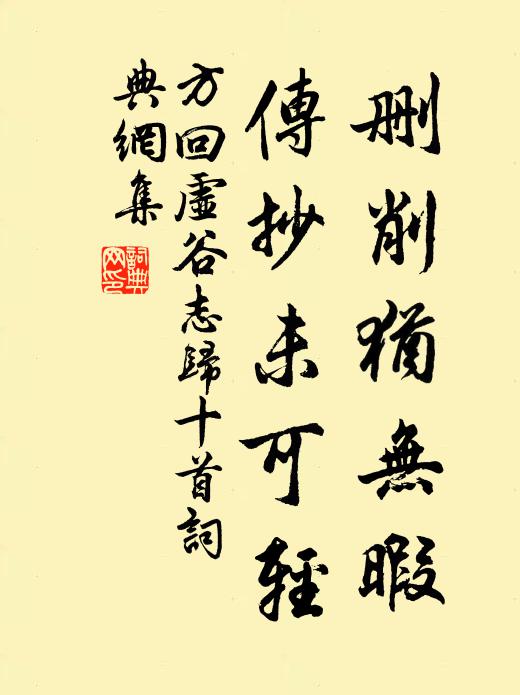 刪削猶無暇
傳抄未可輕
方回虛谷志歸十首詞
典網集
詞典網印